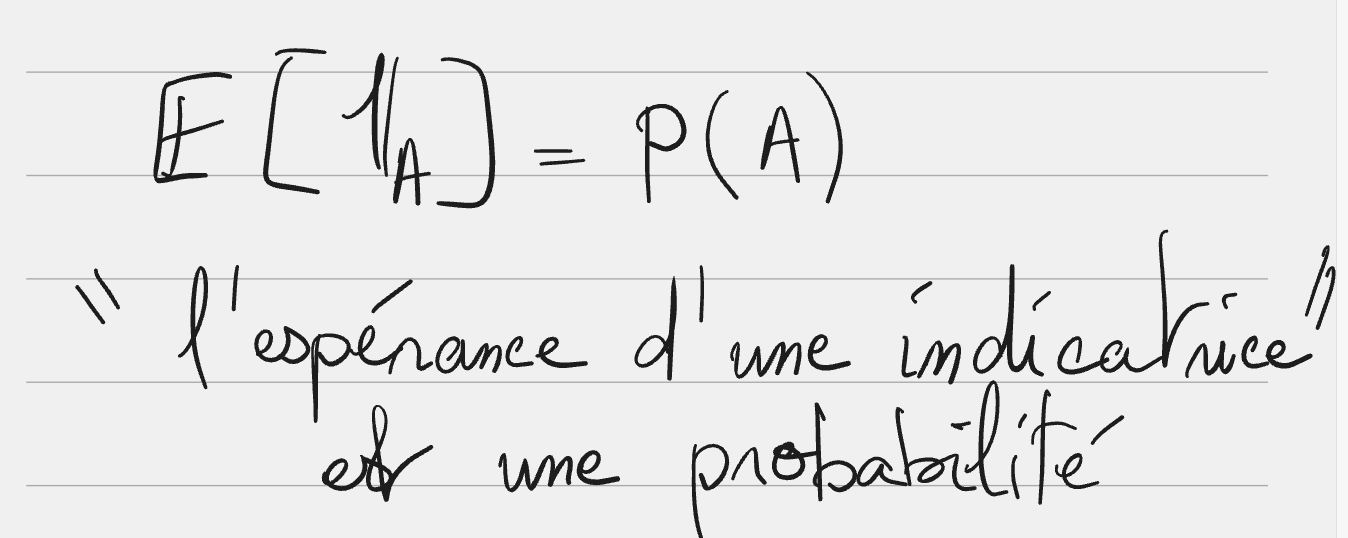 𝔼[𝟙_A] = P(A)
"l'espérance d'une indicatrice"
est une probabilité